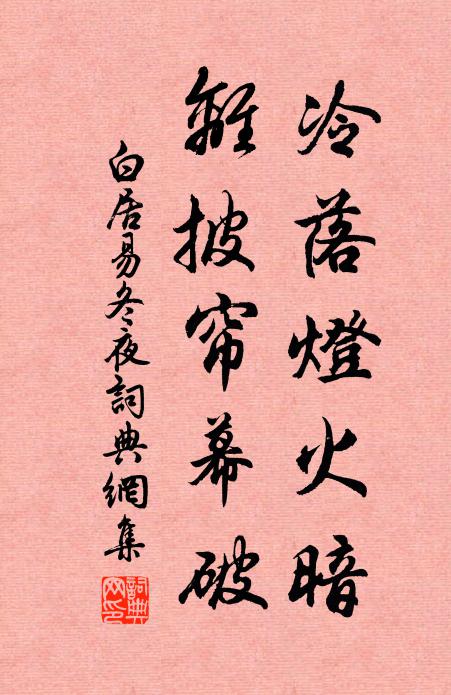 冷落燈火暗
離披帘幕破
白居易冬夜詞典網集
詞典網印